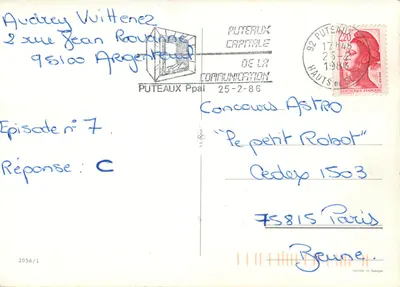 Audrey Vuittenez
2 rue Jean
95100 Argenteuil
PUTEAUX
CAPITALE
DE LA
COMMUNICATION
PUTEAUX Ppal 25-2-86
92 PUTEAUX
12H45
25-2
1986
HAUTS DE
Episode n° 7.
Réponse : C
Concours ASTRO
"Le petit Robot"
Cedex 1503
75815 Paris
Brune.
2056/1